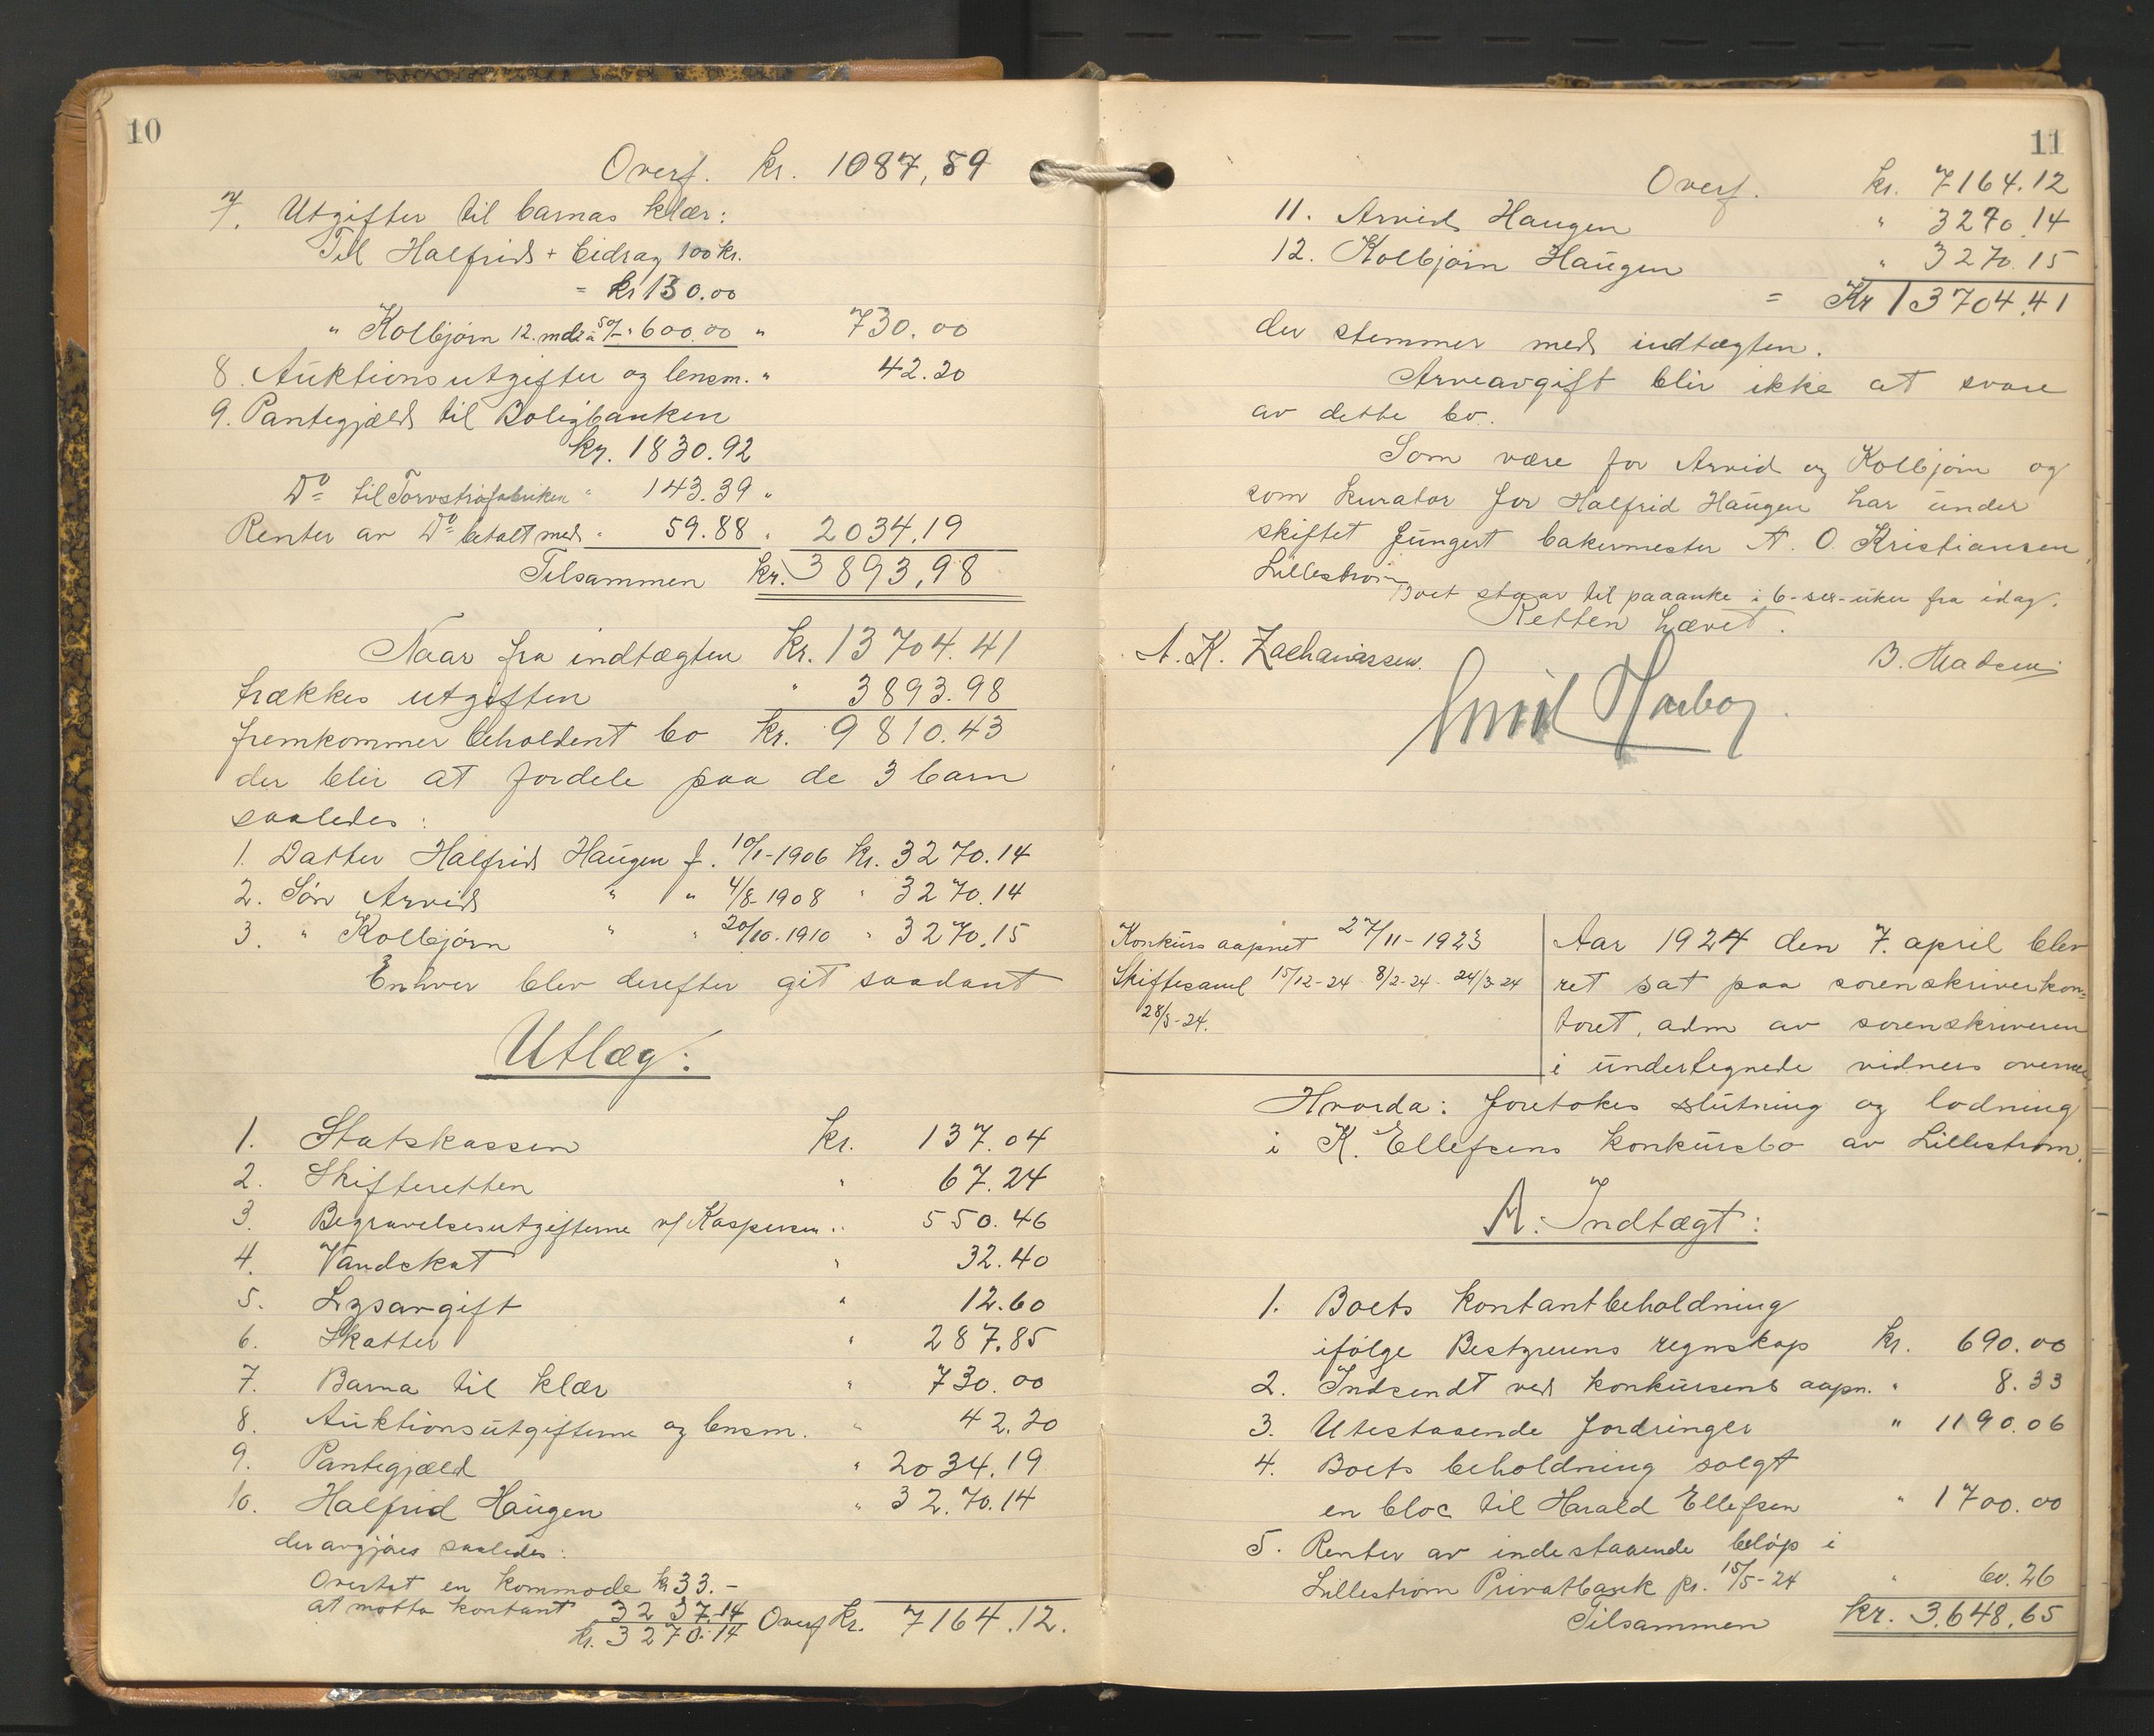 10
Overf. kr. 1087,59
7. Utgifter til barnas klær:
Til Halfrids + bidrag 100 kr.
= kr 130.00
" Kolbjörn 12. mdr à 50/- " 600.00 " 730.00
8. Auktionsutgifter og lensm. " 42.20
9. Pantegjæld til Boligbanken
kr. 1830.92
Do til Torvströfabriken " 143.39 "
Renter av Do betalt med " 59.88 " 2034,19
Tilsammen kr. 3893,98
Naar fra indtægten kr. 13704.41
trækkes utgiften " 3893.98
fremkommer beholdent bo kr. 9810.43
der blir at fordele paa de 3 barn
saaledes:
1. Datter Halfrid Haugen f. 10/1-1906 kr. 3270.14
2. Sön Arvid " " 4/8-1908 " 3270.14
3. " Kolbjörn " " 20/10.1910 " 3270.15
Enhver blev derefter git saadant
Utlæg:
1. Statskassen kr. 137.04
2. Skifteretten " 67.24
3. Begravelsesutgifterne v/ Kaspersen " 550.46
4. Vandskat " 32.40
5. Lysavgift " 12.60
6. Skatter " 287.85
7. Barna til klær " 730.00
8. Auktionsutgifterne og lensm. " 42.20
9. Pantegjæld " 2034.19
10. Halfrid Haugen " 32.70.14
der avgjöres saaledes:
Overtat en kommode kr 33.-
at motta kontant 3237.14
kr. 3270.14 Overf kr. 7164.12.
11
Overf. kr. 7164.12
11. Arvid Haugen " 3270.14
12. Kolbjörn Haugen " 3270.15
= Kr 13704.41
der stemmer med indtægten.
Arveavgift blir ikke at svare
av dette bo.
Som være for Arvid og Kolbjörn og
som kurator for Halfrid Haugen har under
skiftet fungert bakermester A. O. Kristiansen,
Lilleström
Boet staar til paaanke i 6-sex-uker fra idag.
Retten hævet.
A. K. Zachariassen. B. Madsen
Emil Harboy
Konkurs aapnet 27/11-1923
Skiftesaml 15/12-24 8/2-24 24/3-24
28/3-24.
Aar 1924 den 7. april blev
ret sat paa sorenskriverkon=
toret, adm av sorenskriveren
i undertegnede vidners overvær
Hvorda: foretokes slutning og lodning
i K. Ellefsens konkursbo av Lilleström.
A. Indtægt:
1. Boets kontantbeholdning
ifölge Bestyrerens regnskap kr. 690.00
2. Indsendt ved konkursens aapn. " 8.33
3. Utestaaende fordringer " 1190.06
4. Boets beholdning solgt
en bloc til Harald Ellefsen " 1700.00
5. Renter av indestaaende belöp i
Lilleström Privatbank pr. 15/5-24 " 60.26
Tilsammen kr. 3.648.65